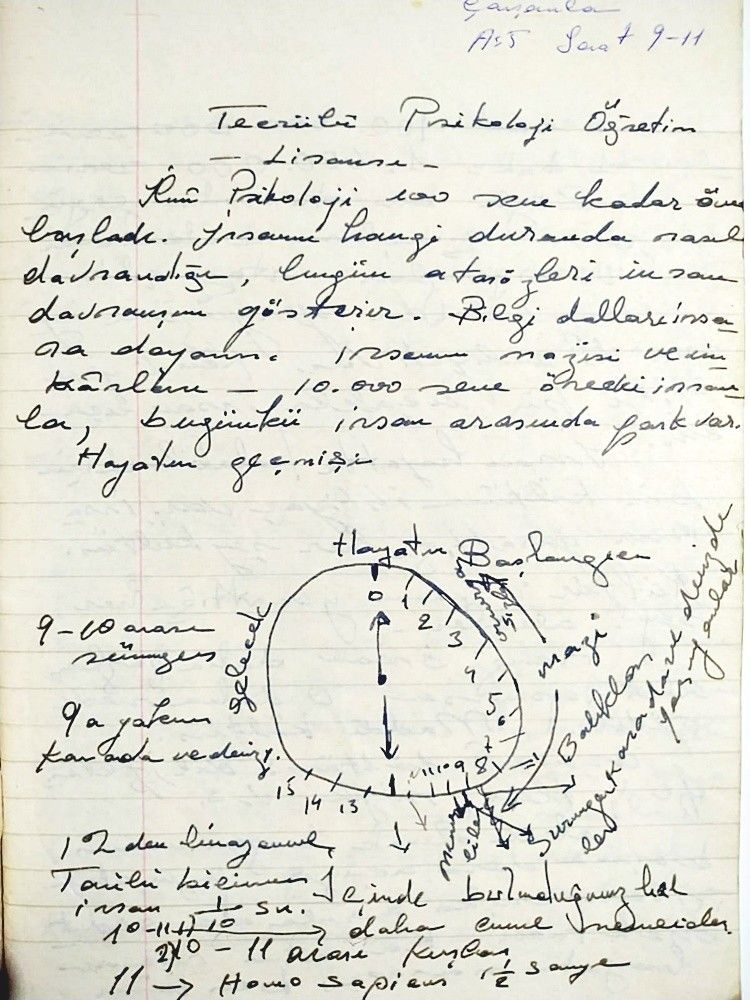 Çarşamba
A:5 Saat 9-11
Tecrübî Psikoloji Öğretim
— Lisansı —
İlmî Psikoloji 100 sene kadar önce
başladı. İnsanın hangi durumda nasıl
davrandığı, bugün atasözleri insan
davranışını gösterir. Bilgi dalları insa-
na dayanır. İnsanın mazisi ve im-
kânları — 10.000 sene önceki insan-
la, bugünkü insan arasında fark var.
Hayatın geçmişi
Hayatın Başlangıcı
0 1 2 3 4 5 6 7 8 9 10 11
13 14 15
gelecek
mazi
9-10 arası
sürüngen
9a yakın
karada ve deniz.
Balıklar
karada ve denizde
yaşayanlar
Sürüngenler
12 den
Tarihî
insan 1/10 sn.
içinde bulunduğumuz hal
10-11 → daha
10 - 11 arası kuşlar
11 → Homo sapiens 1 1/2 saniye